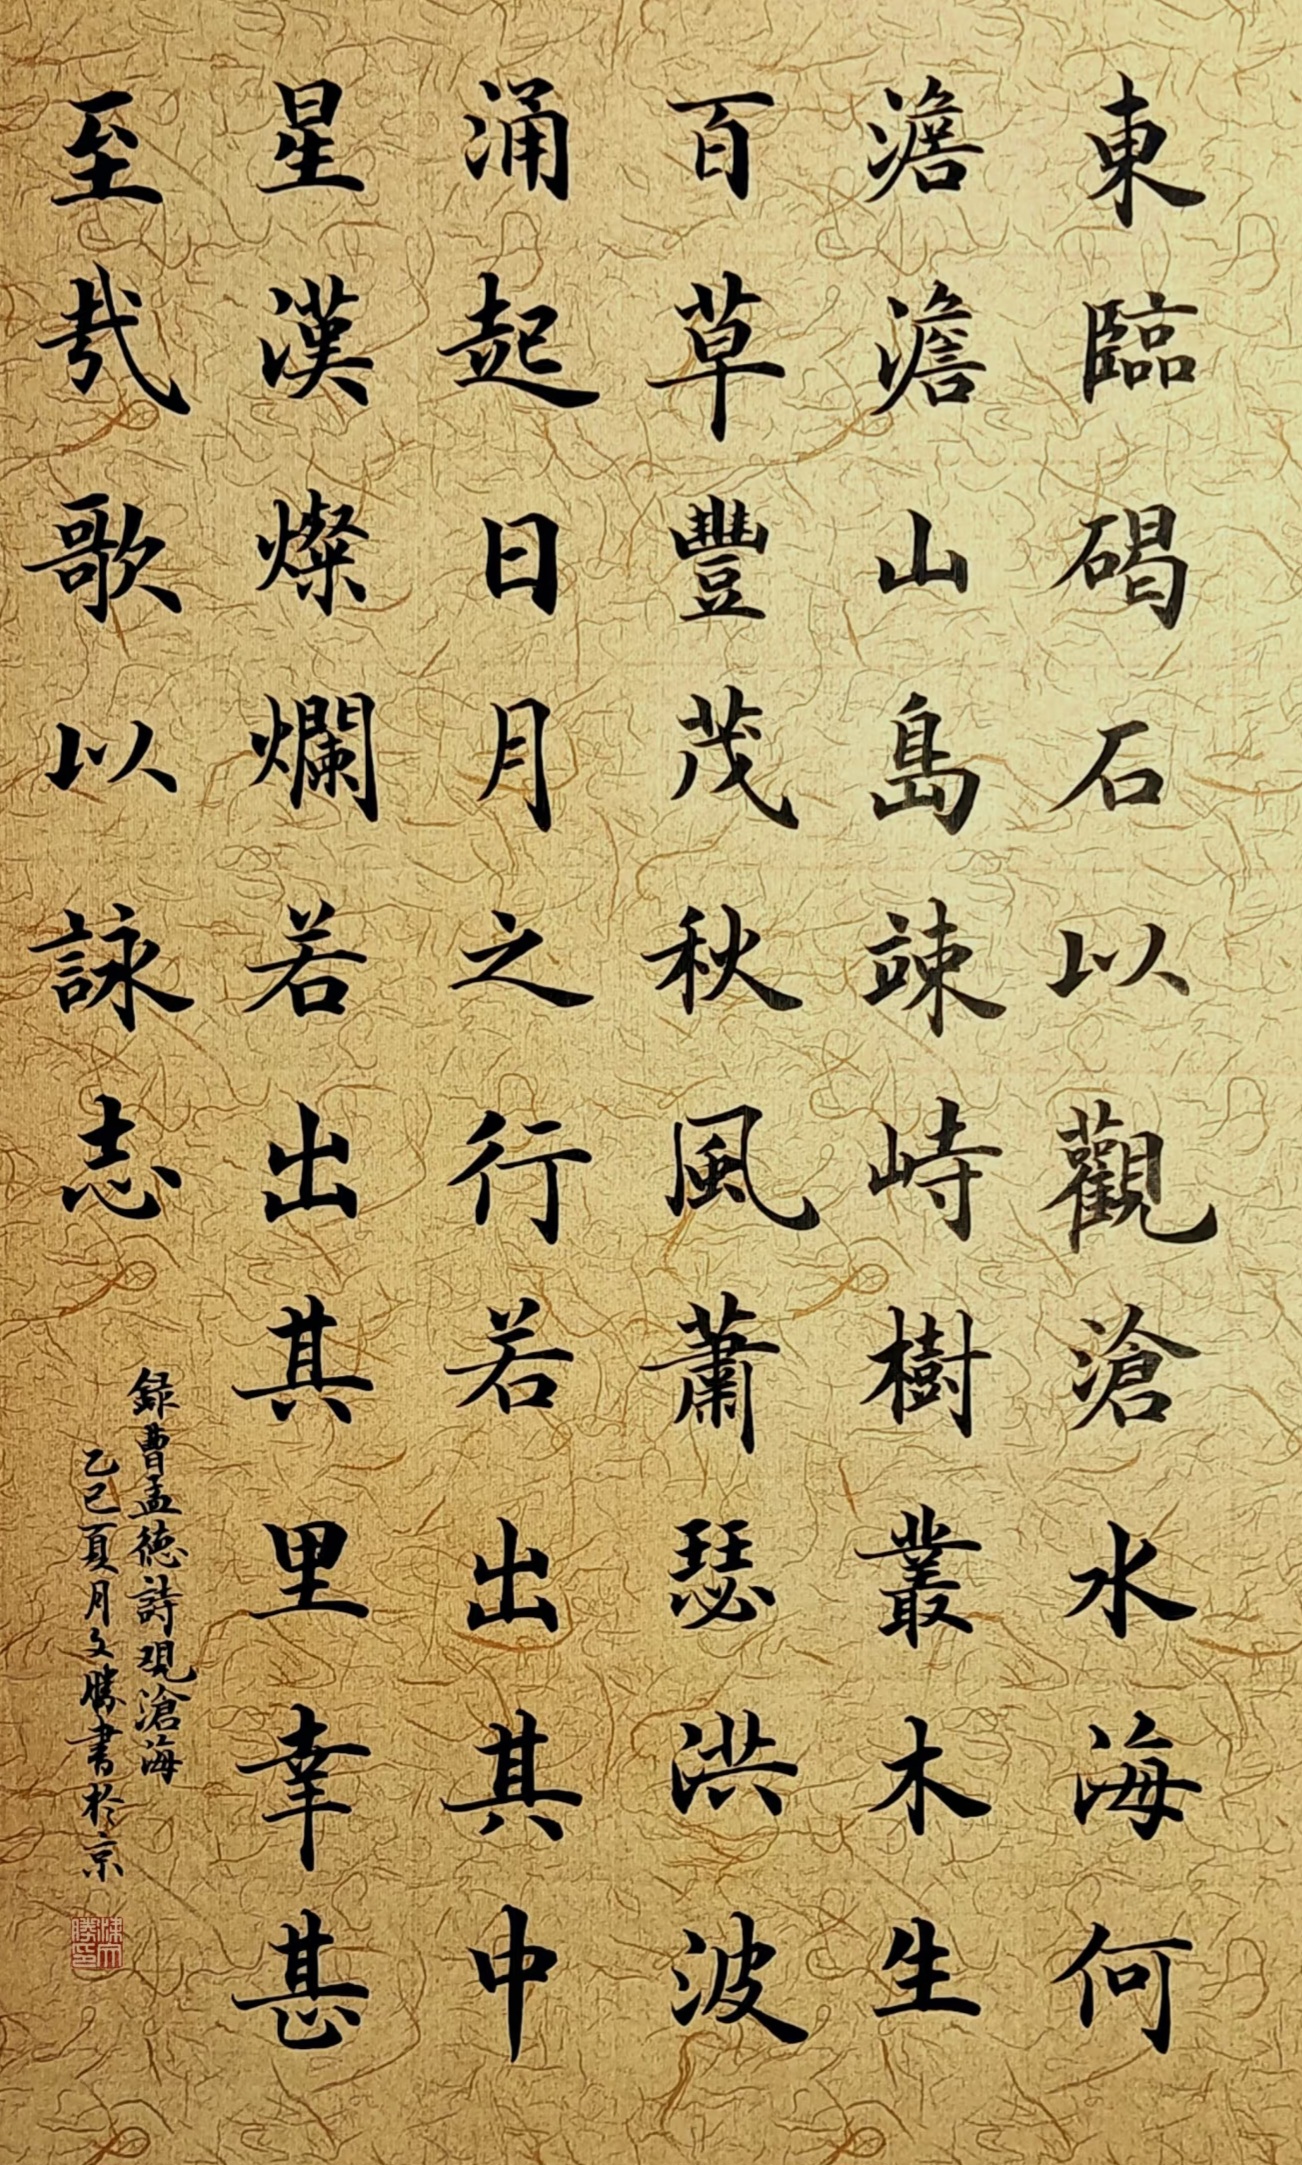 東臨碣石以觀滄水海何
澹澹山島竦峙樹叢木生
百草豐茂秋風蕭瑟洪波
涌起日月之行若出其中
星漢燦爛若出其里幸甚
至哉歌以詠志
録曹孟德詩观滄海
乙巳夏月文勝書於京
陳文勝印